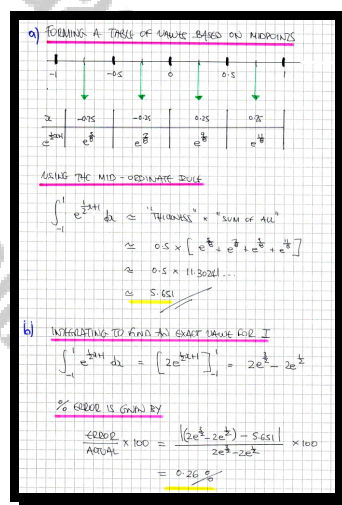 a) FORMING A TABLE OF VALUES BASED ON MIDPOINTS
-1 -0.5 0 0.5 1
x -0.75 -0.25 0.25 0.75
e^{½x+1} e^{5/8} e^{7/8} e^{9/8} e^{11/8}
USING THE MID-ORDINATE RULE
∫_{-1}^{1} e^{½x+1} dx ≃ "THICKNESS" × "SUM OF ALL"
≃ 0.5 × [e^{5/8} + e^{7/8} + e^{9/8} + e^{11/8}]
≃ 0.5 × 11.30241...
≃ 5.651
b) INTEGRATING TO FIND AN EXACT VALUE FOR I
∫_{-1}^{1} e^{½x+1} dx = [2e^{½x+1}]_{-1}^{1} = 2e^{3/2} - 2e^{½}
% ERROR IS GIVEN BY
ERROR/ACTUAL × 100 = |(2e^{3/2} - 2e^{½}) - 5.651| / 2e^{3/2} - 2e^{½} × 100
= 0.26 %